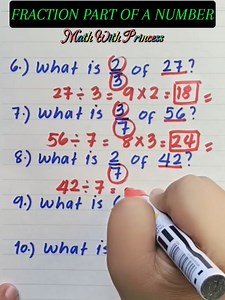 FRACTION PART OF A NUMBER
Math With Princess
6.) what is 2/3 of 27?
27 ÷ 3 = 9 × 2 = 18 =
7.) what is 3/7 of 56?
56 ÷ 7 = 8 × 3 = 24 =
8.) what is 2/7 of 42?
42 ÷ 7 =
9.) what is
10.) what is